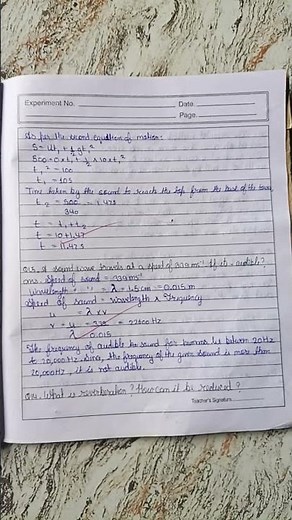 Experiment No.
Date
Page
As per the second equation of motion:
S = ut₁ + ½ gt₁²
500 = 0 x t₁ + ½ x 10 x t₁²
t₁² = 100
t₁ = 10s
Time taken by the sound to reach the top from the base of the tower
t₂ = 500 = 1.47s
340
t = t₁ + t₂
t = 10 + 1.47
t = 11.47s
Q15. A sound wave travels at a speed of 339 ms⁻¹. If its audible?
ans. Speed of sound = 339 ms⁻¹
Wavelength = 1.5cm = 0.015 m
Speed of sound = wavelength x frequency
= λ x v
= 22600 Hz
λ 0.015
The frequency of audible the sound for human lie between 20Hz
to 20,000Hz. Since, the frequency of the given sound is more than
20,000Hz, it is not audible.
What is reverberation? How can it be reduced?
Teacher's Signature